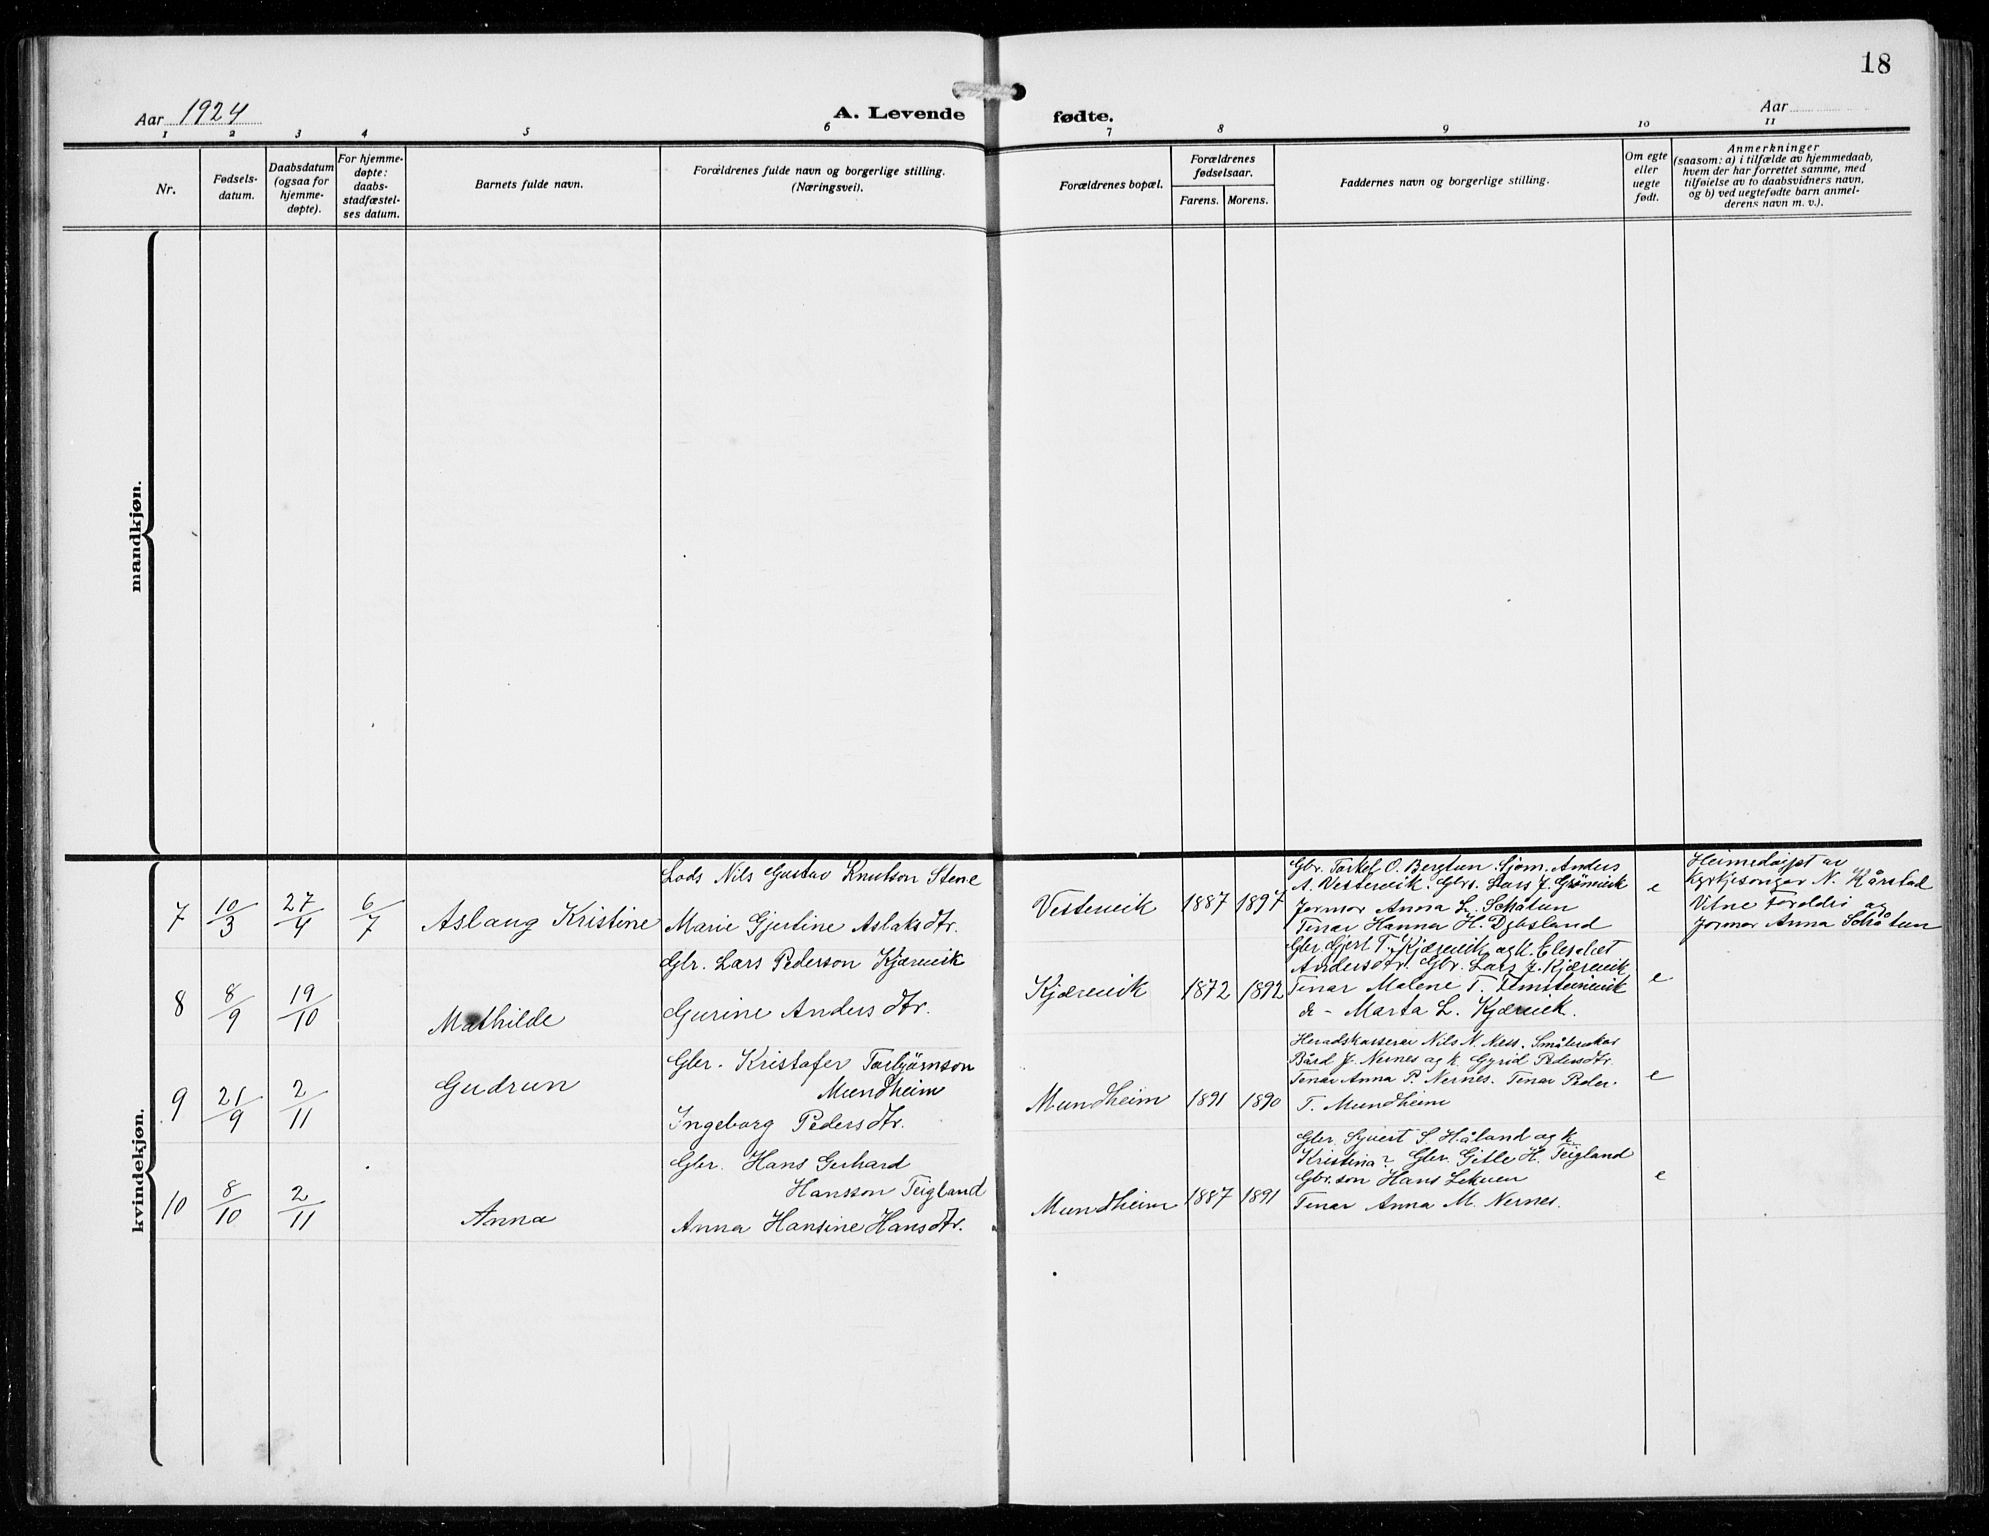 18
Aar 1924
A. Levende
fødte.
Aar
1 2 3 4 5 6 7 8 9 10 11
Nr.
Fødsels-
datum.
Daabsdatum
(ogsaa for
hjemme-
døpte).
For hjemme-
døpte:
daabs-
stadfæstel-
ses datum.
Barnets fulde navn.
Forældrenes fulde navn og borgerlige stilling.
(Næringsvei).
Forældrenes bopæl.
Forældrenes
fødselsaar.
Farens. Morens.
Faddernes navn og borgerlige stilling.
Om egte
eller
uegte
født.
Anmerkninger
(saasom: a) i tilfælde av hjemmedaab,
hvem der har forrettet samme, med
tilføielse av to daabsvidners navn,
og b) ved uegtefødte barn anmel-
derens navn m. v.).
mandkjøn.
kvindekjøn.
7
10/3
27/4
6/7
Aslaug Kristine
Lods Nils Gustav Knutson Stene
Marie Gjertine Aslaksdtr.
Vestervik
1887 1897
Gbr. Torkel O. Bergtun. Sjøm. Anders
A. Vestervik. Gbr. Lars J. Grønevik
Jormor Anna L. Schåtun
Tenar Hanna H. Dybsland
e
Heimedøipt av
Kyrkjesongar N. Kårstad
Vitne foreldri og
Jormor Anna Schåtun
8
8/9
19/10
Mathilde
Gbr. Lars Pederson Kjærevik
Gurine Andersdtr.
Kjærevik
1872 1892
Gbr. Gjert T. Kjærevik og k. Elisabet
Andersdtr. Gbr. Lars J. Kjærevik
Tenar Malene T.
do - Marta L. Kjærevik.
e
9
21/9
2/11
Gudrun
Gbr. Kristafer Torbjørnson
Mundheim
Ingeborg Pedersdtr.
Mundheim
1891 1890
Heradskasserar Nils N. Ness. Småbrukar
Bård J. Nernes og k. Gyrid Pedersdtr.
Tenar Anna P. Nernes. Tenar Peder
T. Mundheim
e
10
8/10
2/11
Anna
Gbr. Hans Gerhard
Hansson Teigland
Anna Hansine Hansdtr.
Mundheim
1887 1891
Gbr. Syvert S. Håland og k.
Kristina? Gbr. Gitle H. Teigland
Gbr.son Hans Lekven
Tenar Anna M. Nernes.
e